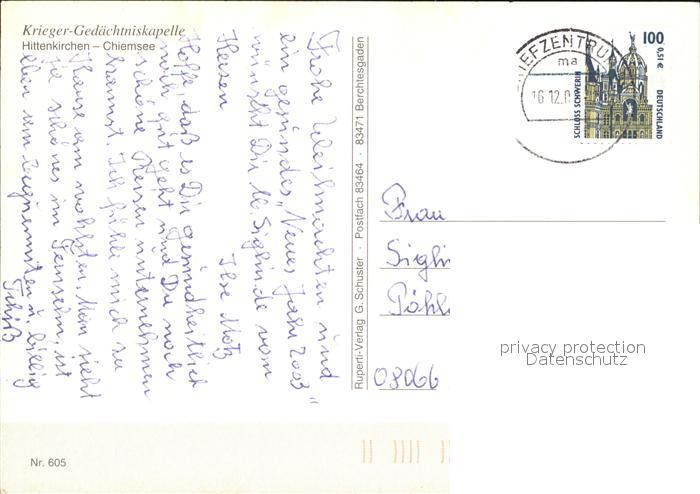 Krieger-Gedächtniskapelle
Hittenkirchen – Chiemsee
Frohe Weihnachten und
ein gesundes „Neues Jahr 2003“
wünscht Dir lb. Siglinde vom
Herzen
Ilse Motz
Hoffe, daß es Dir gesundheitlich
noch gut geht und Du noch
schöne Reisen unternehmen
kannst. Ich fühle mich zu
Hause am wohlsten. Man sieht
so schönes im Fernsehn, ist
am und billig
Ruperti-Verlag G. Schuster · Postfach 83464 · 83471 Berchtesgaden
BRIEFZENTRUM
ma
16.12.0
SCHLOSS SCHWERIN
100
0,51€
DEUTSCHLAND
Frau
Sigli
Pöhl
08066
privacy protection
Datenschutz
Nr. 605